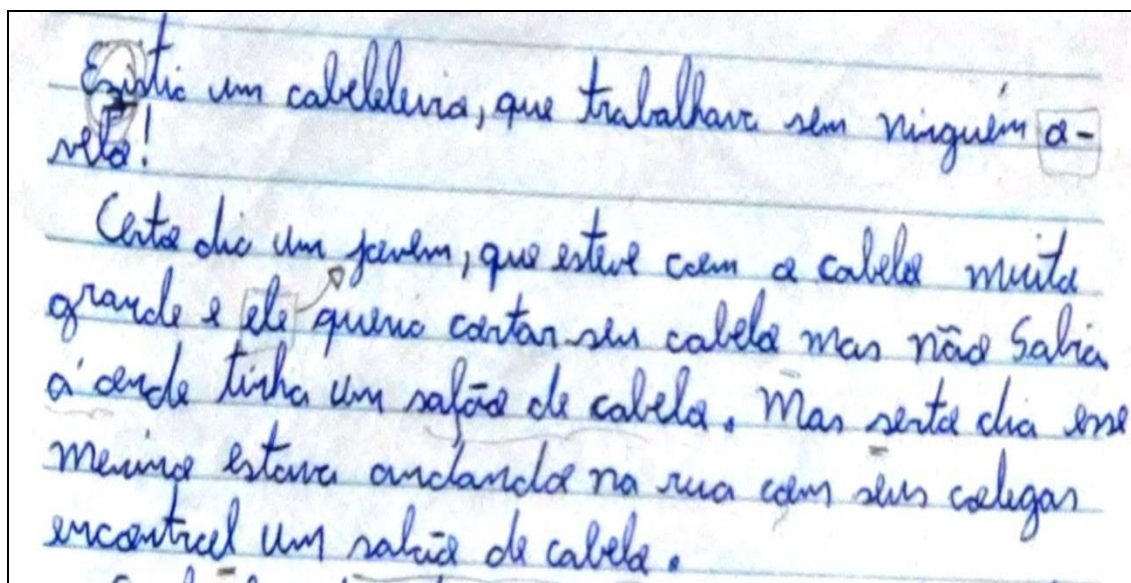 Existia um cabeleleiro, que trabalhava sem ninguém a-
velo!
Certo dia um jovem, que esteve com o cabelo muito
grande e ele queria cortar seu cabelo mas não Sabia
a'onde tinha um salão de cabelo. Mas serto dia esse
menino estava andando na rua com seus colegas
encontrol um salão de cabelo.